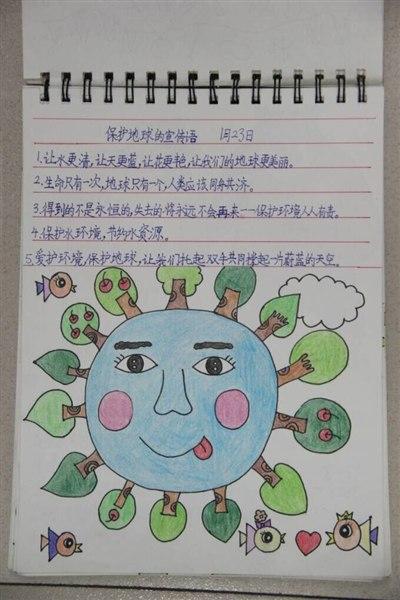 保护地球的宣传语 1月23日
1.让水更清,让天更蓝,让花更艳,让我们的地球更美丽。
2.生命只有一次,地球只有一个,人类应该同舟共济。
3.得到的不是永恒的,失去的将永远不会再来——保护环境人人有责。
4.保护水环境,节约水资源。
5.爱护环境,保护地球,让我们托起双手共同撑起一片蔚蓝的天空。